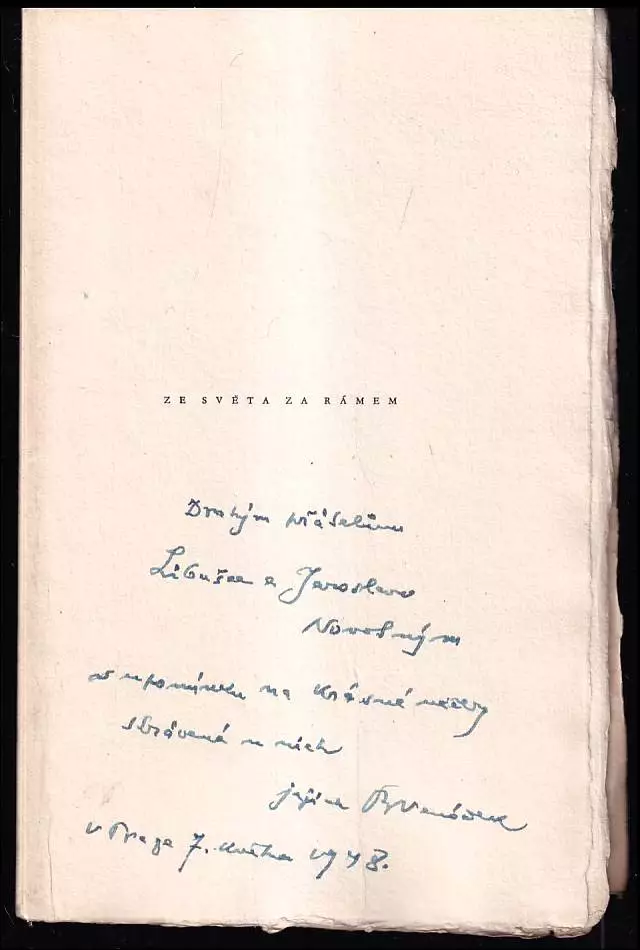 ZE SVĚTA ZA RÁMEM
Drahým přátelům
Libušce a Jaroslavu
Novotným
na upomínku na krásné
strávené u nich
v Praze 7. května 1948.